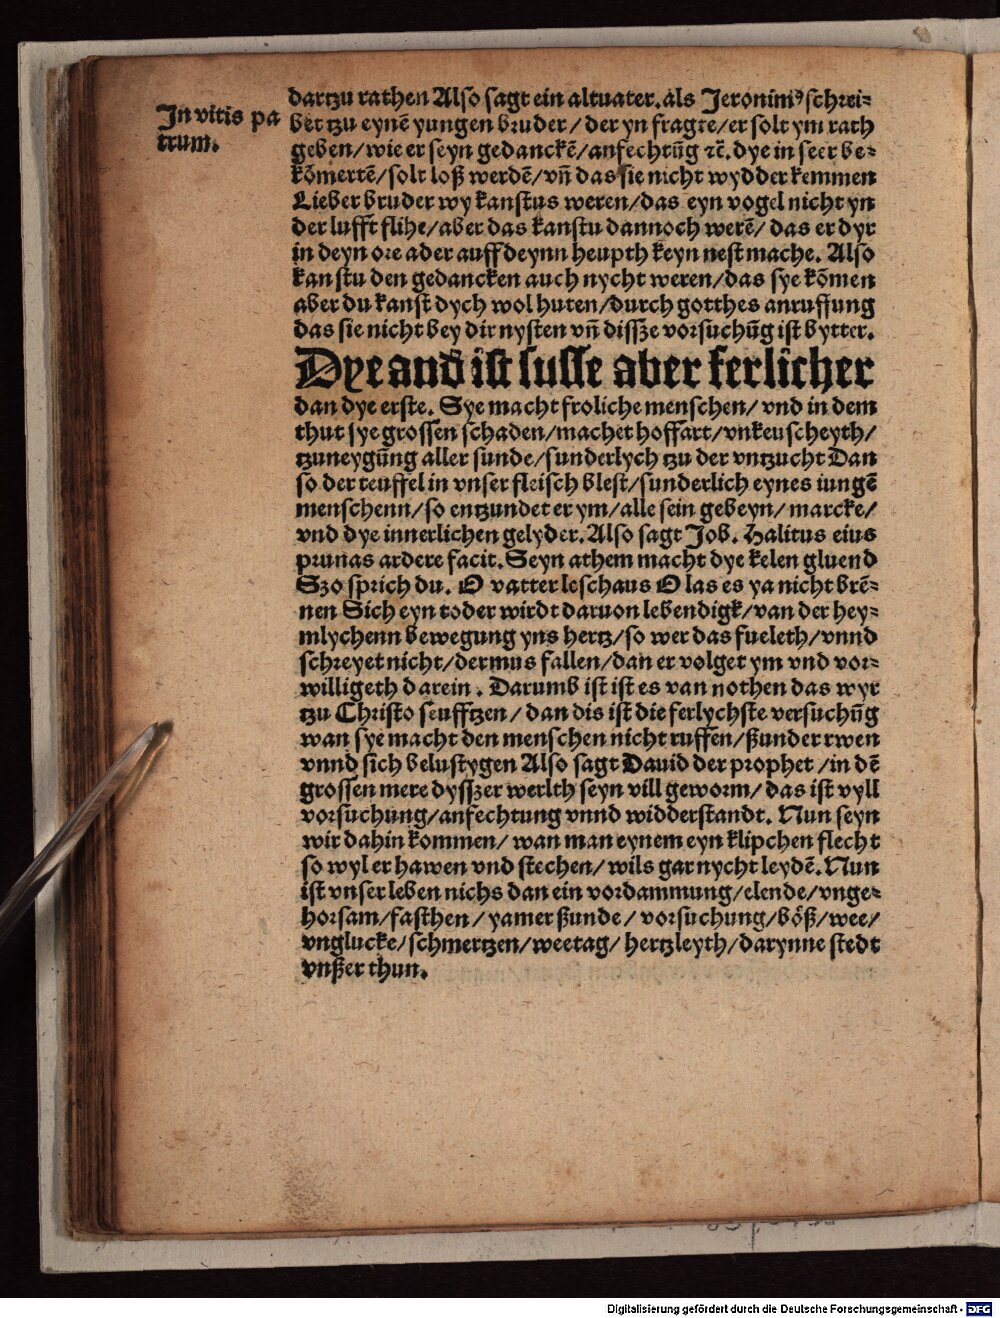 In vitis pa
trum.
dartzu rathen Also sagt ein altuater. als Jeronimꝰ schrei⸗
bet tzu eynē yungen bruder / der yn fragte / er solt ym rath
geben / wie er seyn gedanckē / anfechtūg ⁊c̄. dye in seer be⸗
kōmertē / solt loß werdē / vn̄ das sie nicht wydder kemmen
Lieber bruder wy kanstus weren / das eyn vogel nicht yn
der lufft flihe / aber das kanstu dannoch werē / das er dyr
in deyn ore ader auff deynn heupth keyn nest mache. Also
kanstu den gedancken auch nycht weren / das sye kōmen
aber du kanst dych wol huten / durch gotthes anruffung
das sie nicht bey dir nysten vn̄ dissze vorsuchūg ist bytter.
Dye and̄ ist susse aber ferlicher
dan dye erste. Sye macht froliche menschen / vnd in dem
thut sye grossen schaden / machet hoffart / vnkeuscheyth /
tzuneygūng aller sunde / sunderlych tzu der vntzucht Dan
so der teuffel in vnser fleisch blest / sunderlich eynes iungē
menschenn / so entzundet er ym / alle sein gebeyn / marcke /
vnd dye innerlichen gelyder. Also sagt Job. Halitus eius
prunas ardere facit. Seyn athem macht dye kelen gluend
Szo sprich du. O vatter leschaus O las es ya nicht brē⸗
nen Sich eyn toder wirdt daruon lebendigk / van der hey⸗
mlychenn bewegung yns hertz / so wer das fueleth / vnnd
schreyet nicht / der mus fallen / dan er volget ym vnd vor⸗
willigeth darein. Darumb ist ist es van nothen das wyr
tzu Christo seufftzen / dan dis ist die ferlychste versuchūg
wan sye macht den menschen nicht ruffen / ßunder rwen
vnnd sich belustygen Also sagt Dauid der prophet / in dē
grossen mere dysszer werlth seyn vill geworm / das ist vyll
vorsuchung / anfechtung vnnd widderstandt. Nun seyn
wir dahin kommen / wan man eynem eyn klipchen flecht
so wyl er hawen vnd stechen / wils gar nycht leydē. Nun
ist vnser leben nichs dan ein vordammung / elende / vnge⸗
horsam / fasthen / yamer ßunde / vorsuchung / bōß / wee /
vnglucke / schmertzen / weetag / hertzleyth / darynne stedt
vnßer thun.
Digitalisierung gefördert durch die Deutsche Forschungsgemeinschaft - DFG